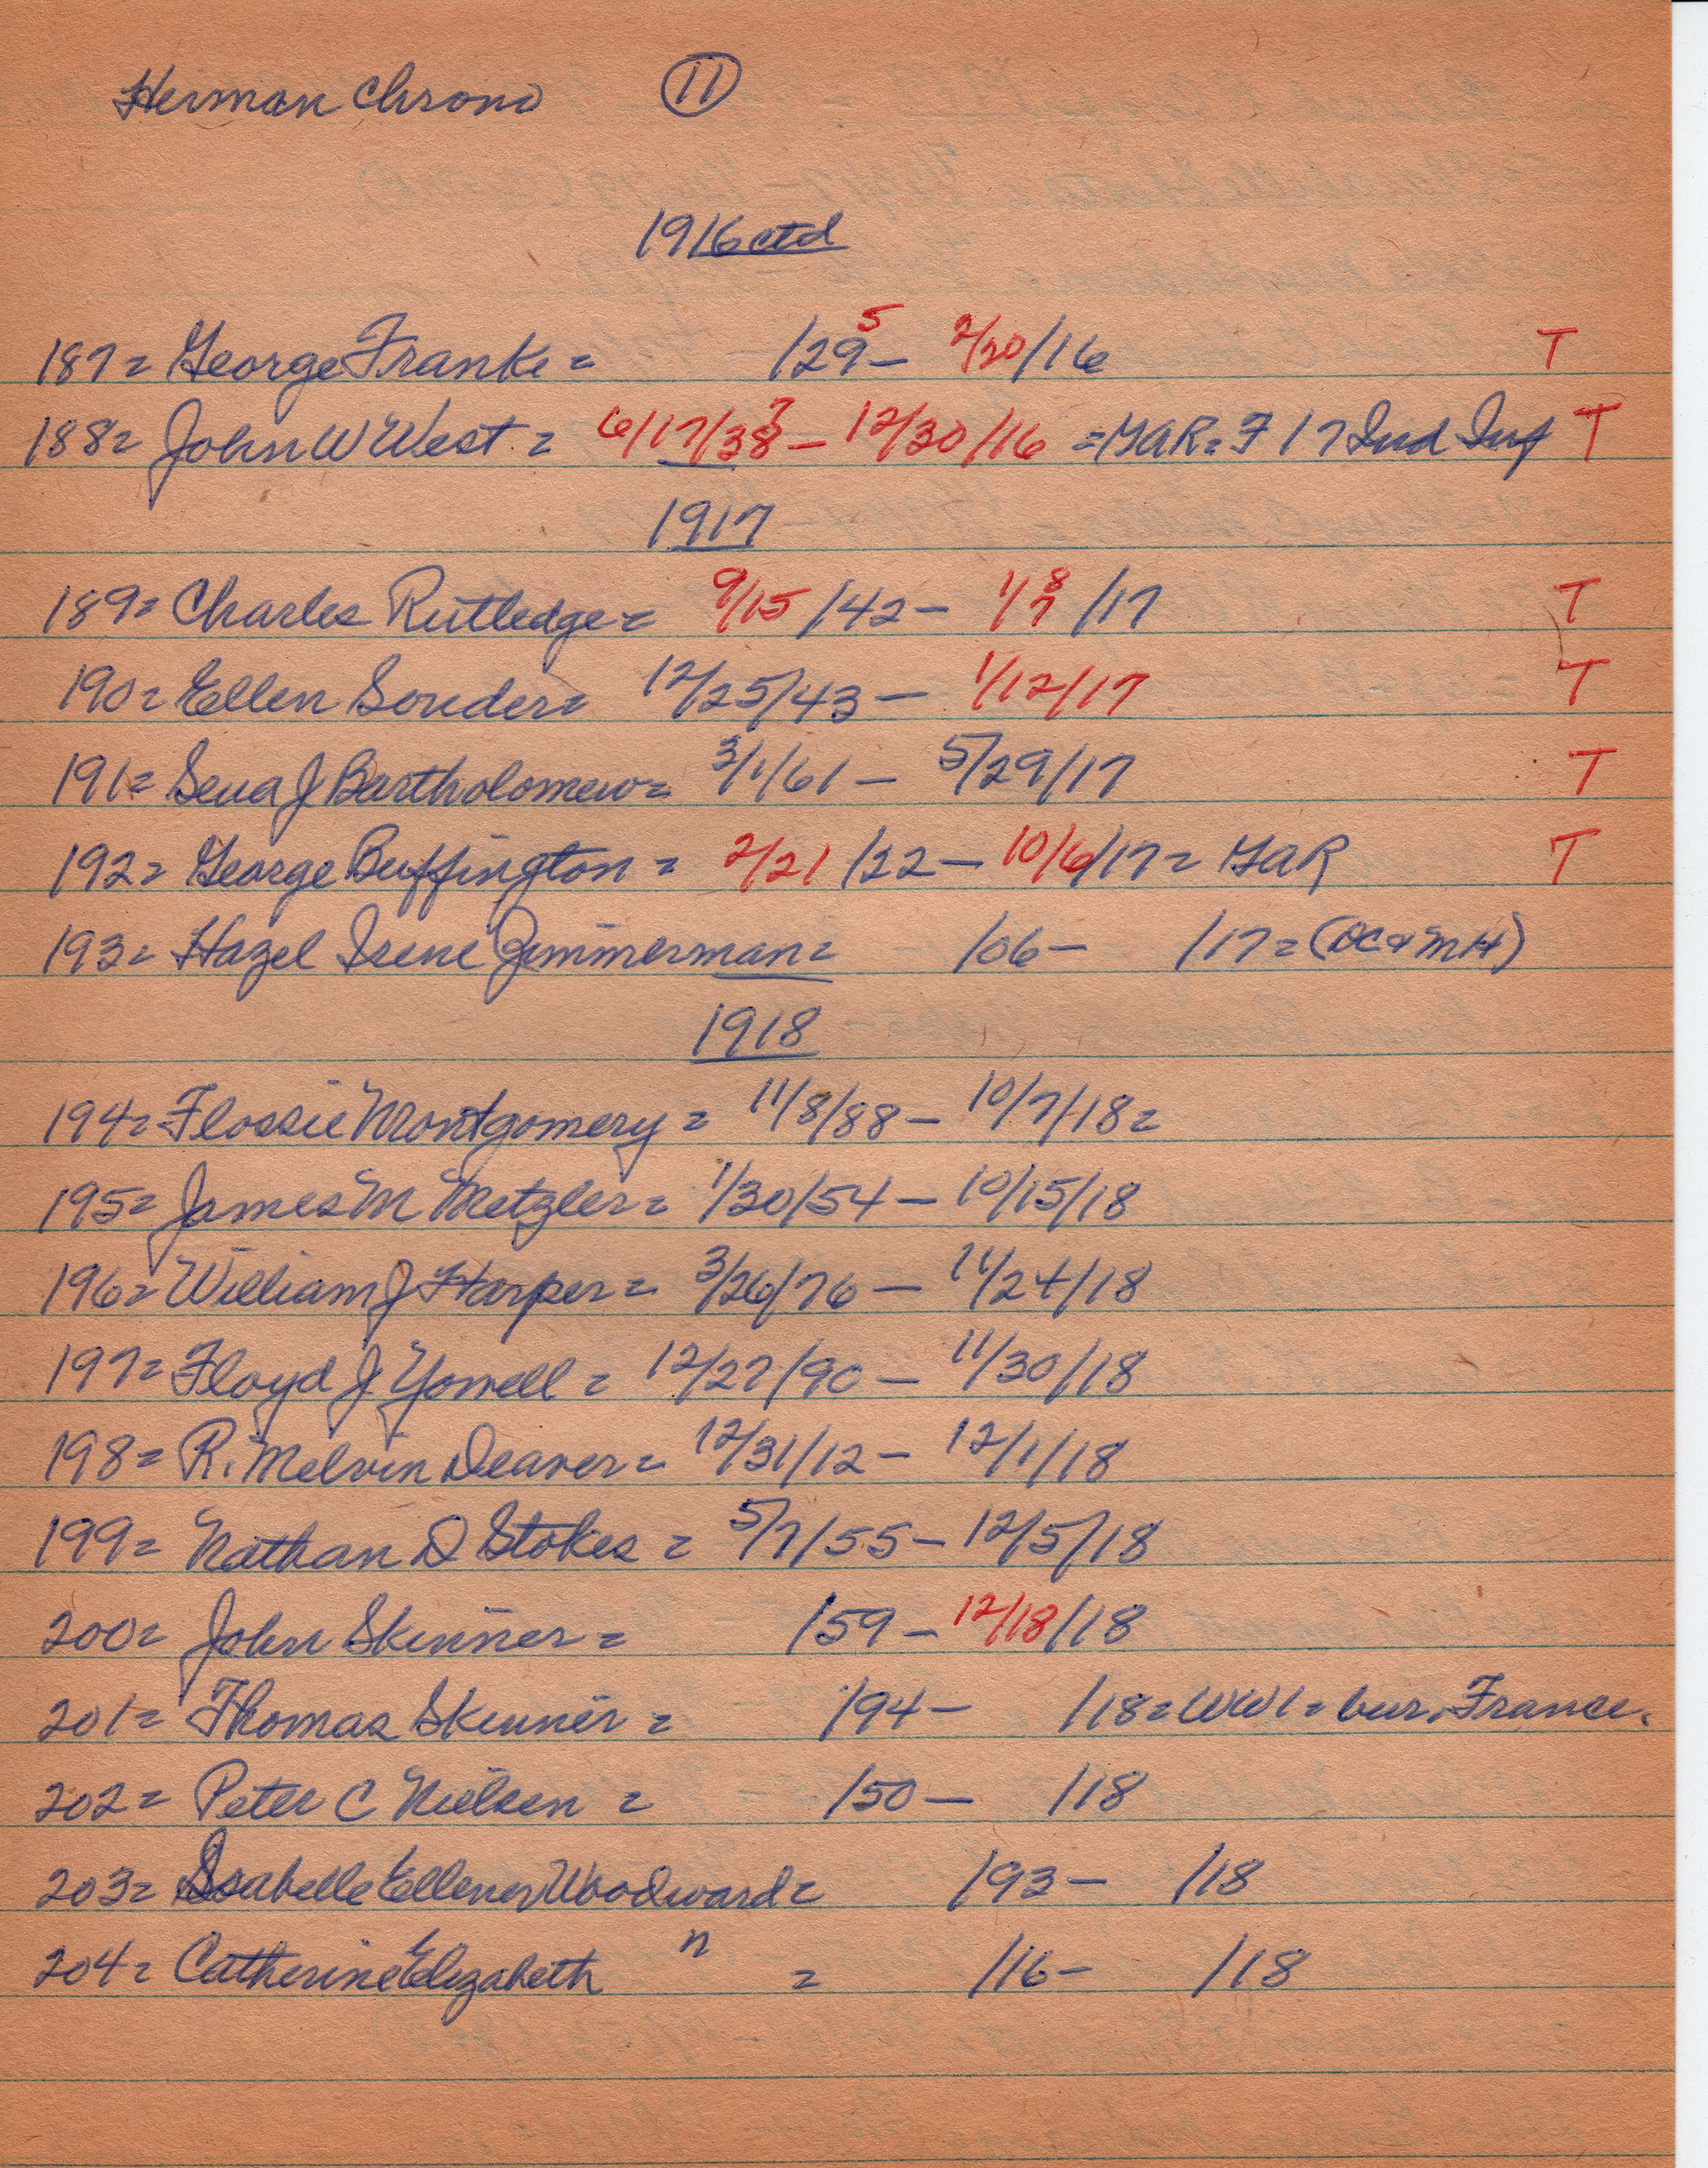 Herman Chrono 11
1916 ctd
187= George Franke = /29- 5 2/20/16 T
188= John W West = 6/17/38 7 - 12/30/16 = GAR= F 17 Ind Inf T
1917
189= Charles Rutledge = 9/15/42 - 1/7 8 /17 T
190= Ellen Souder= 12/25/43 - 1/12/17 T
191= Seua J Bartholomew= 3/1/61 - 5/29/17 T
192= George Buffington = 2/21/22 - 10/6/17 = GAR T
193= Hazel Irene Zimmerman= /06 - /17 = (DC & MH)
1918
194= Flossie Montgomery = 11/8/88 - 10/7/18 =
195= James M Metzler = 1/30/54 - 10/15/18
196= William J Harper = 3/26/76 - 11/24/18
197= Floyd J. Yowell = 12/27/90 - 11/30/18
198= R. Melvin Deaver = 12/31/12 - 12/1/18
199= Nathan D Stokes = 5/7/55 - 12/5/18
200= John Skinner = /59 - 12/18/18
201= Thomas Skinner = /94 - /18 = WW1 = bur. France.
202= Peter C Nielsen = /50 - /18
203= Isabelle Ellener Woodward = /93 - /18
204= Catherine Elizabeth " = /16 - /18